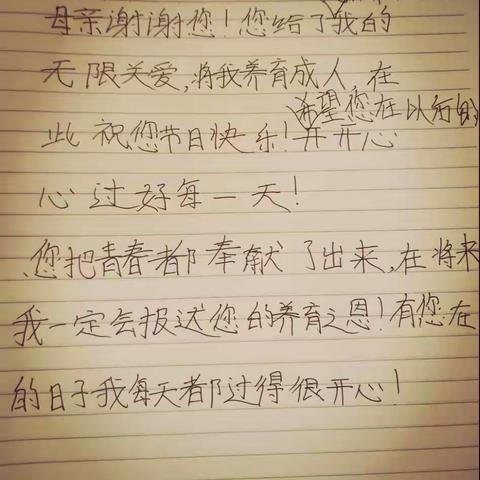 母亲谢谢您！您给了我的
无限关爱,将我养育成人,在
希望您在以后的
此祝您节日快乐！开开心
心过好每一天！
您把青春都奉献了出来,在将来
我一定会报达您的养育之恩！有您在
的日子我每天都过得很开心！